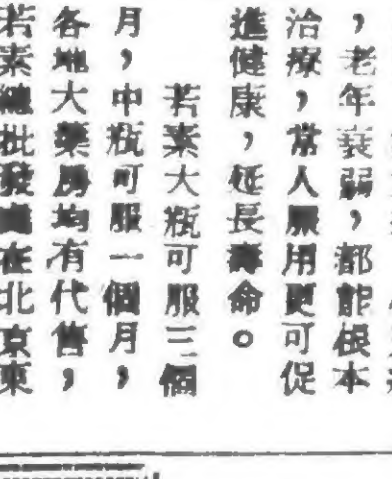 ，老年衰弱，都能根本
治療，常人服用更可促
進健康，延長壽命。
若素大瓶可服三個
月，中瓶可服一個月，
各地大藥房均有代售，
若素總批發處在北京東